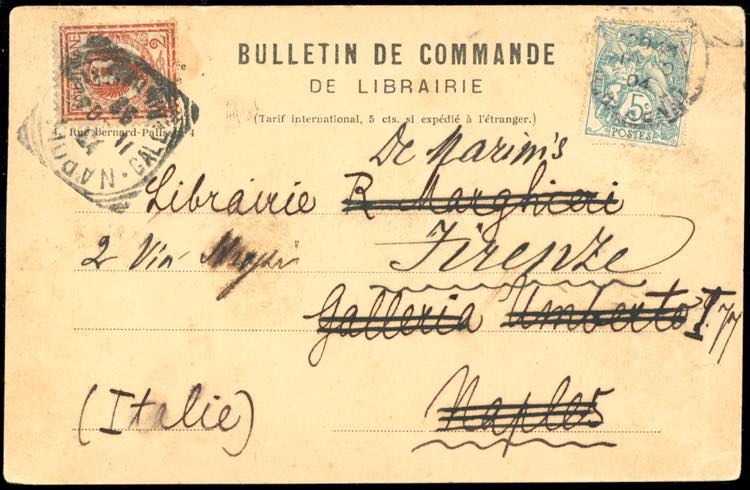 BULLETIN DE COMMANDE
DE LIBRAIRIE
(Tarif international, 5 cts. si expédié à l'étranger.)
4, Rue Bernard-Palissy, 4
5c
POSTES
De Marinis
Librairie R Marghieri
2 Via
Firenze
Galleria Umberto I. 77
(Italie)
Naples